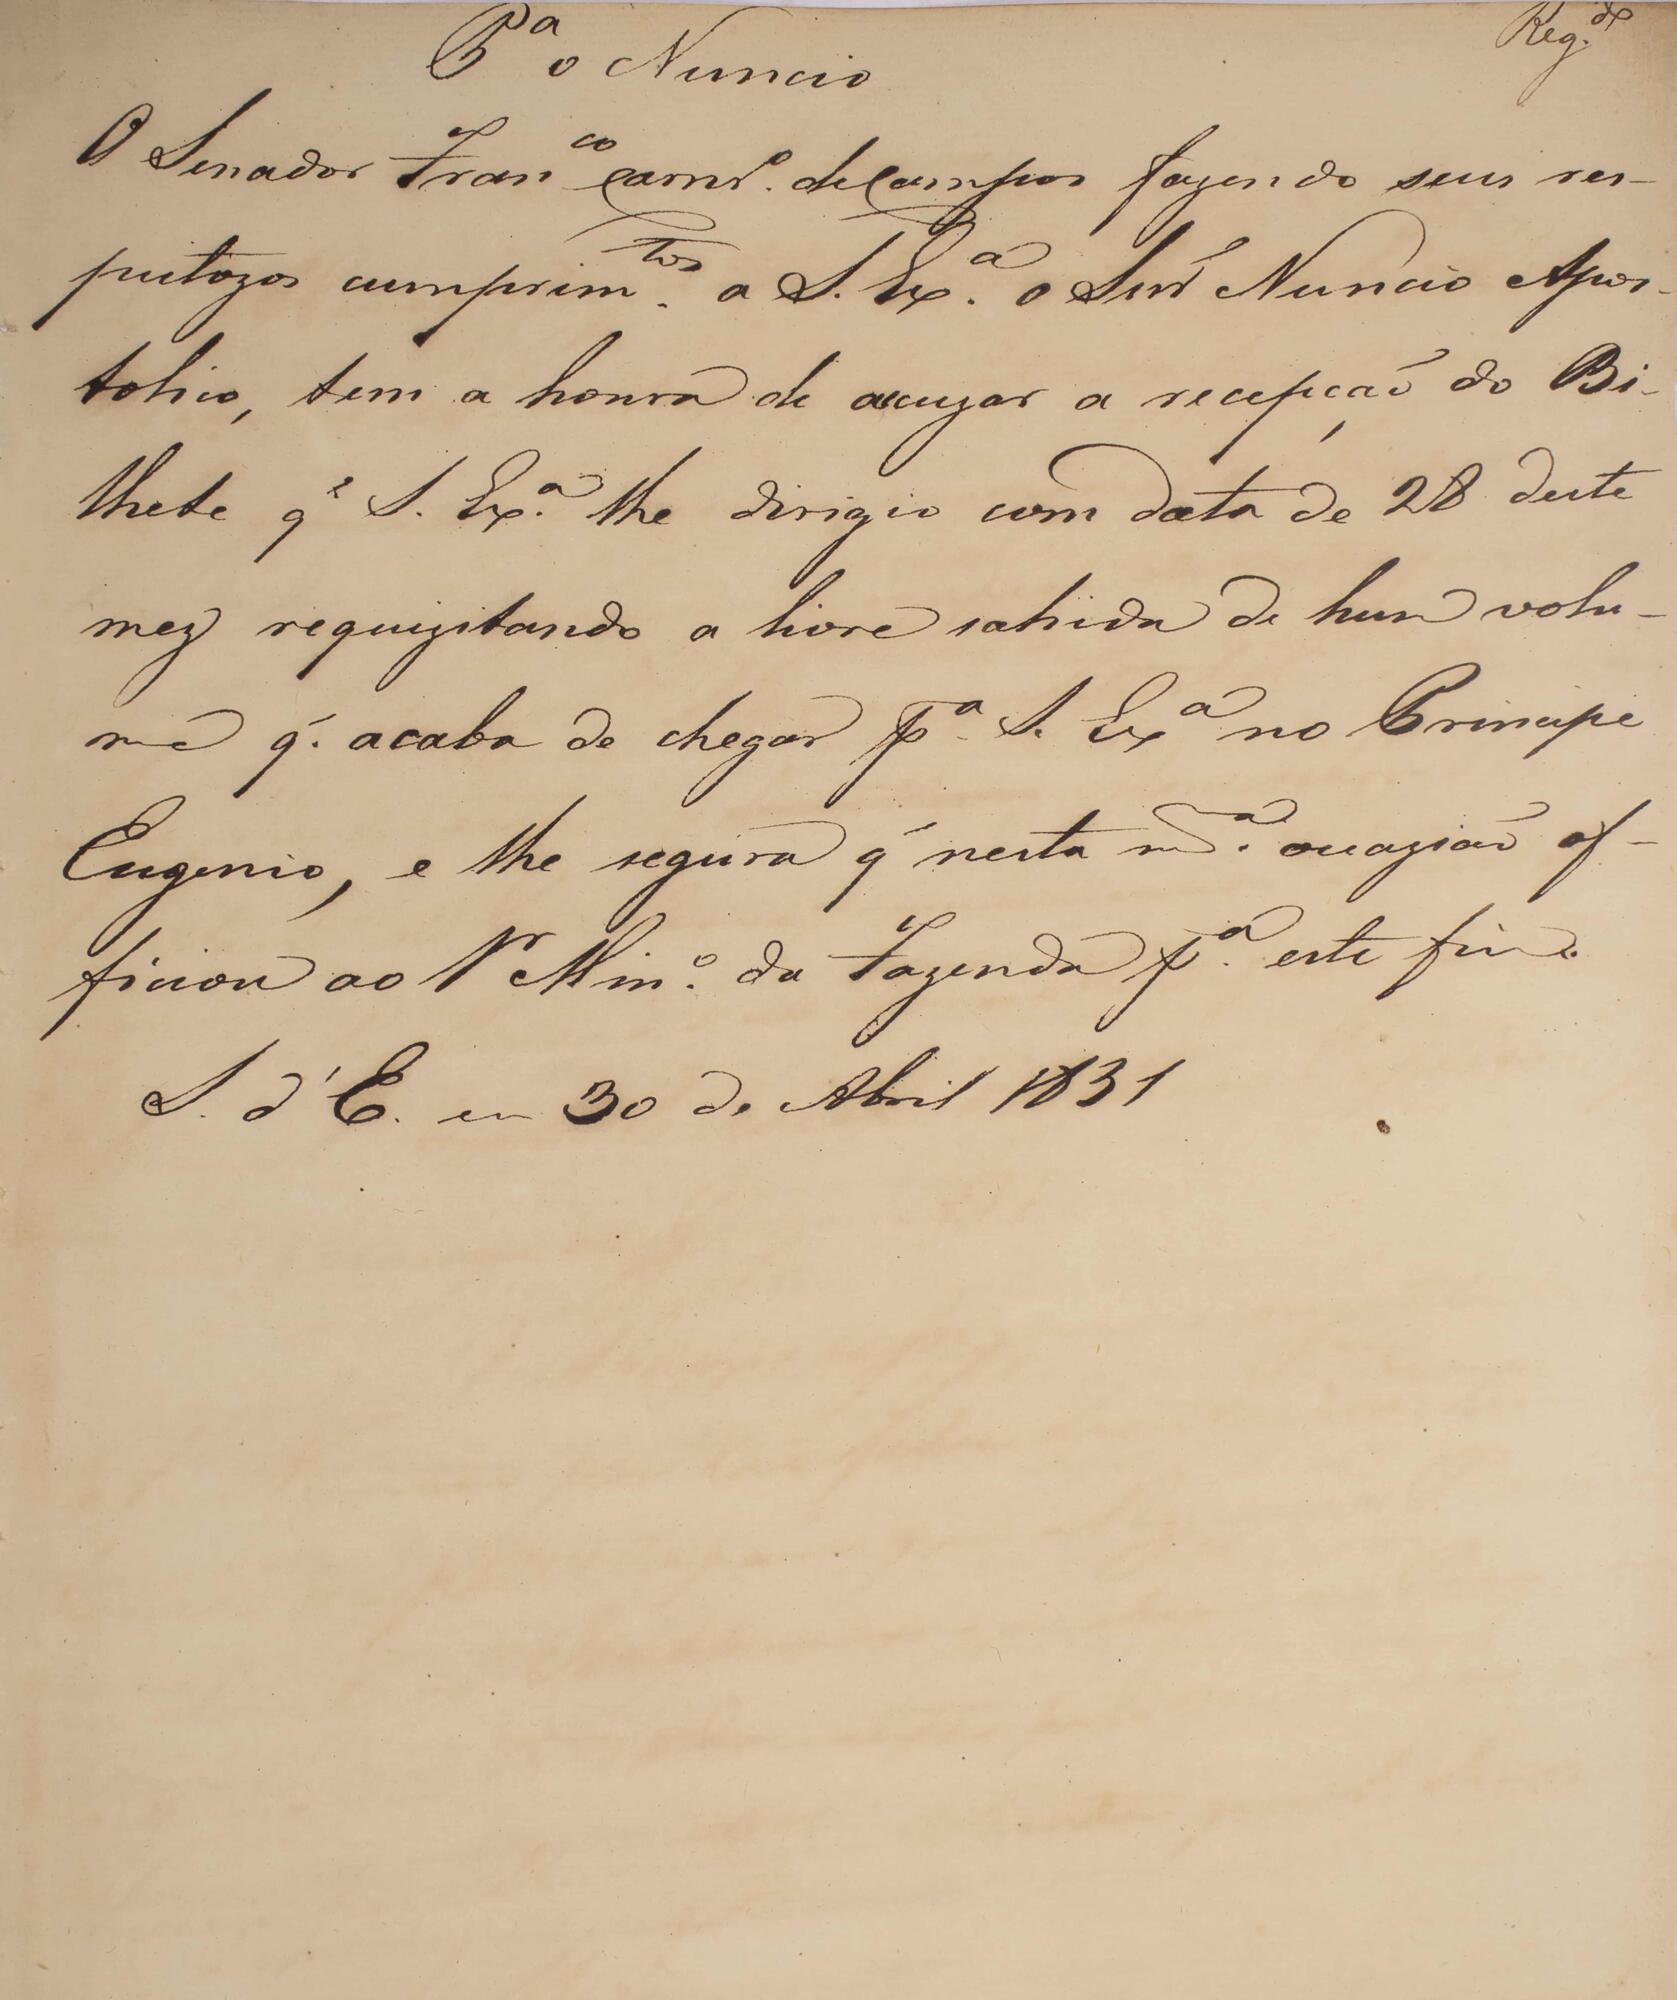 Pª o Nuncio
Reg.do
O Senador Franco Carnro. de Campos fazendo seus res-
peitozos cumprimtos. a S. Exª. o Snr' Nuncio Apos-
tolico, tem a honra de acuzar a recepção do Bi-
lhete qe S. Exª. lhe dirigio com data de 28 deste
mez requizitando a livre sahida de hum volu-
me q'. acaba de chegar pª. S. Exª no Principe
Eugenio, e lhe segura q' nesta mª. occazião of-
ficiou ao Mino. da Fazenda pª. este fim.
S. d'E. em 30 de Abril 1831